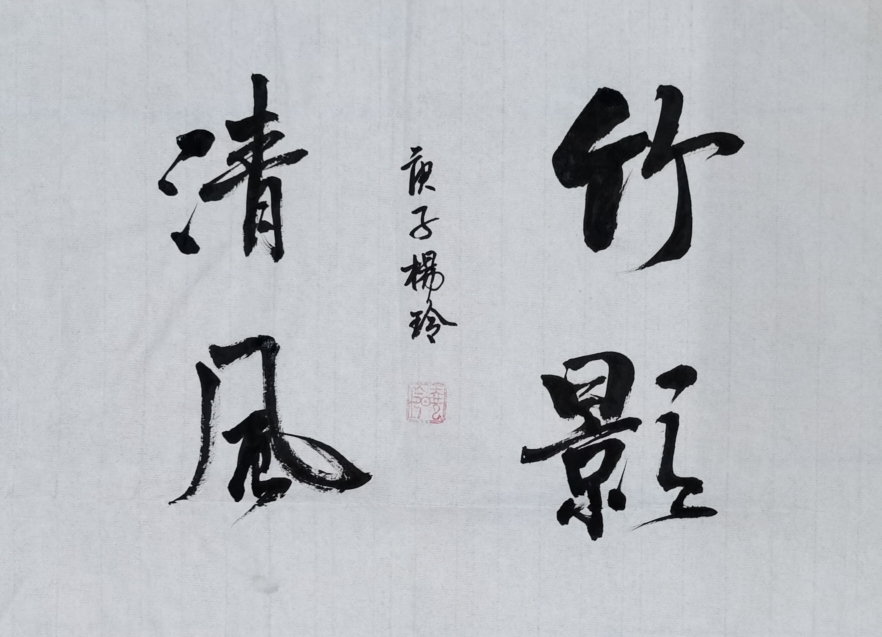 竹影
清风
庚子楊玲